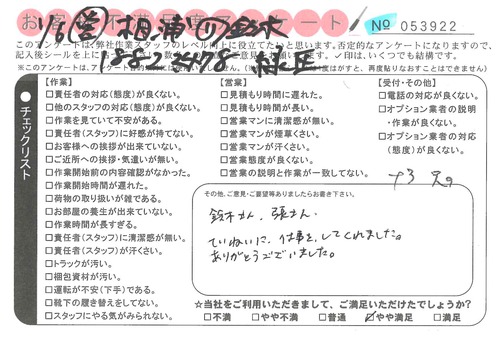 アンケート № 053922
1/6 営 相浦 鈴木
188-2-24178 緑区
このアンケートは、弊社作業スタッフのレベル向上に役立てたいと思います。否定的なアンケートになりますので、
チェックリスト
【作業】
□責任者の対応(態度)が良くない。
□他のスタッフの対応(態度)が良くない。
□作業を見ていて不安がある。
□責任者(スタッフ)に好感が持てない。
□お客様への挨拶が出来ていない。
□ご近所への挨拶・気遣いが無い。
□作業開始前の内容確認がなかった。
□作業開始時間が遅れた。
□荷物の取り扱いが雑である。
□お部屋の養生が出来ていない。
□作業時間が長すぎる。
□責任者(スタッフ)に清潔感が無い。
□責任者(スタッフ)が汗くさい。
□トラックが汚い。
□梱包資材が汚い。
□運転が不安(下手)である。
□靴下の履き替えをしてない。
□スタッフにやる気がみられない。
【営業】
□見積もり時間に遅れた。
□見積もり時間が長い。
□営業マンに清潔感が無い。
□営業マンが煙草くさい。
□営業マンが汗くさい。
□営業態度が良くない。
□営業の説明と作業が一致してない。
【受付・その他】
□電話の対応が良くない。
□オプション業者の説明
・作業が良くない。
□オプション業者の対応
(態度)が良くない。
その他、ご意見・ご要望等ありましたらお書き下さい。
鈴木さん、張さん、
ていねいに、仕事を、してくれました。
ありがとうございました。
☆当社をご利用いただきまして、ご満足いただけたでしょうか?
□不満 □やや不満 □普通 □やや満足 □満足